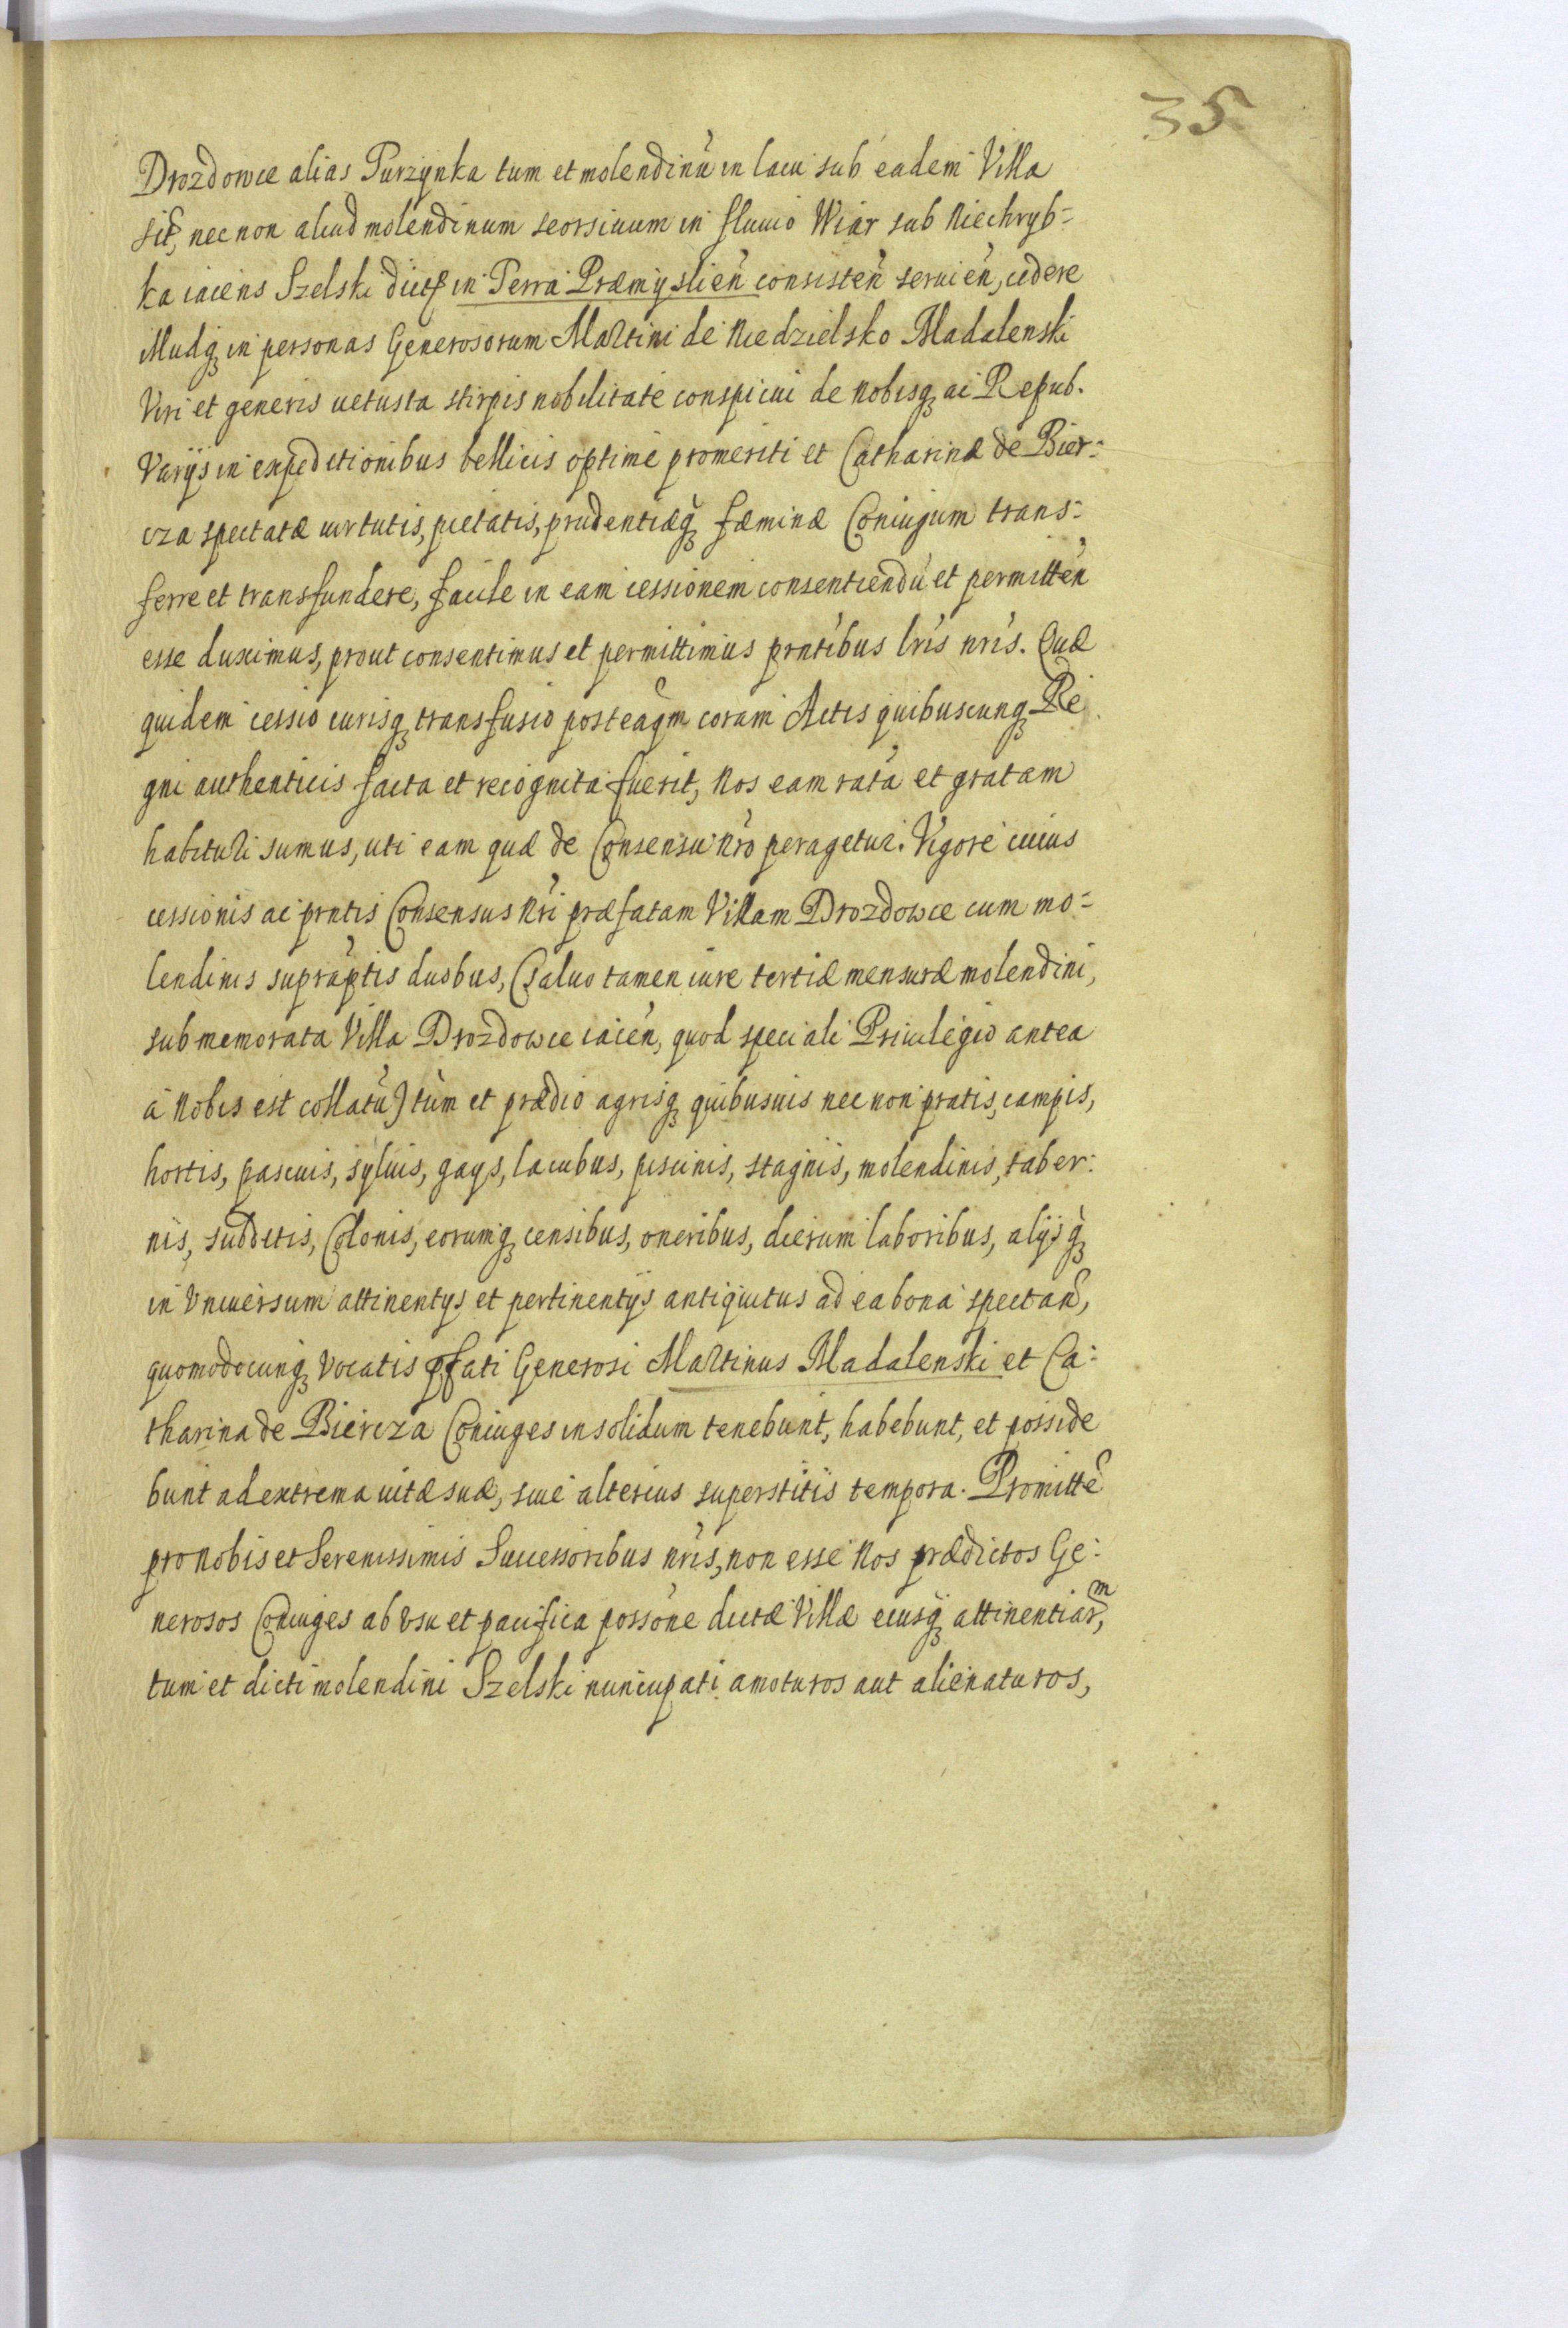 35
Drozdowce alias Purzynka tum et molendinũ in lacu sub eadem Villa
sit, nec non aliud molendinum seorsiuum in fluuio Wiar sub Niechryb=
ka iacens Szelski dict in Terra Præmyslien̄ consisten̄ seruien̄, cedere
illudq́ꝫ in personas Generosorum Martini de Niedzielsko Madalenski
Viri et generis uetusta stirpis nobilitate conspicui de Nobisqꝫ ac Repub.
Varijs in expeditionibus bellicis optime promeriti et Catharinæ de Bier=
cza spectatæ uirtutis, pietatis, prudentiæqꝫ fæminæ Coniugum trans=
ferre et transfundere, facile in eam cessionem consentiendũ et permitten̄
esse duximus, prout consentimus et permittimus pñtibus lris nris. Quæ
quidem cessio iurisqꝫ transfusio posteaqm coram Actis quibuscunqꝫ Re
gni authenticis facta et recognita fuerit, Nos eam ratã et gratam
habituri sumus, uti eam quæ de Consensu nro peragetur. Vigore cuius
cessionis ac pñtis Consensus nri præfatam Villam Drozdowce cum mo=
lendinis supraptis duobus, (saluo tamen iure tertiæ mensuræ molendini,
sub memorata Villa Drozdowce iacen̄, quod speciali Priuilegio antea
a Nobis est collatũ) tum et prædio agrisqꝫ quibusuis nec non pratis, campis,
hortis, pascuis, syluis, gays, lacubus, piscinis, stagnis, molendinis, taber=
nis, subditis, Colonis, eorumqꝫ censibus, oneribus, dierum laboribus, alijsqꝫ
in Vniuersum attinentys et pertinentijs antiquitus ad ea bona spectan̄,
quomodocunqꝫ vocatis pfati Generosi Martinus Madalenski et Ca=
tharina de Biercza Coniuges in solidum tenebunt, habebunt, et posside
bunt ad extrema uitæ suæ, siue alterius superstitis tempora. Promitte
pro Nobis et Serenissimis Successoribus nris, non esse Nos prædictos Ge=
nerosos Coniuges ab vsu et pacifica possõne dictæ Villæ eiusqꝫ attinentiarm,
tum et dicti molendini Szelski nuncupati amoturos aut alienaturos,